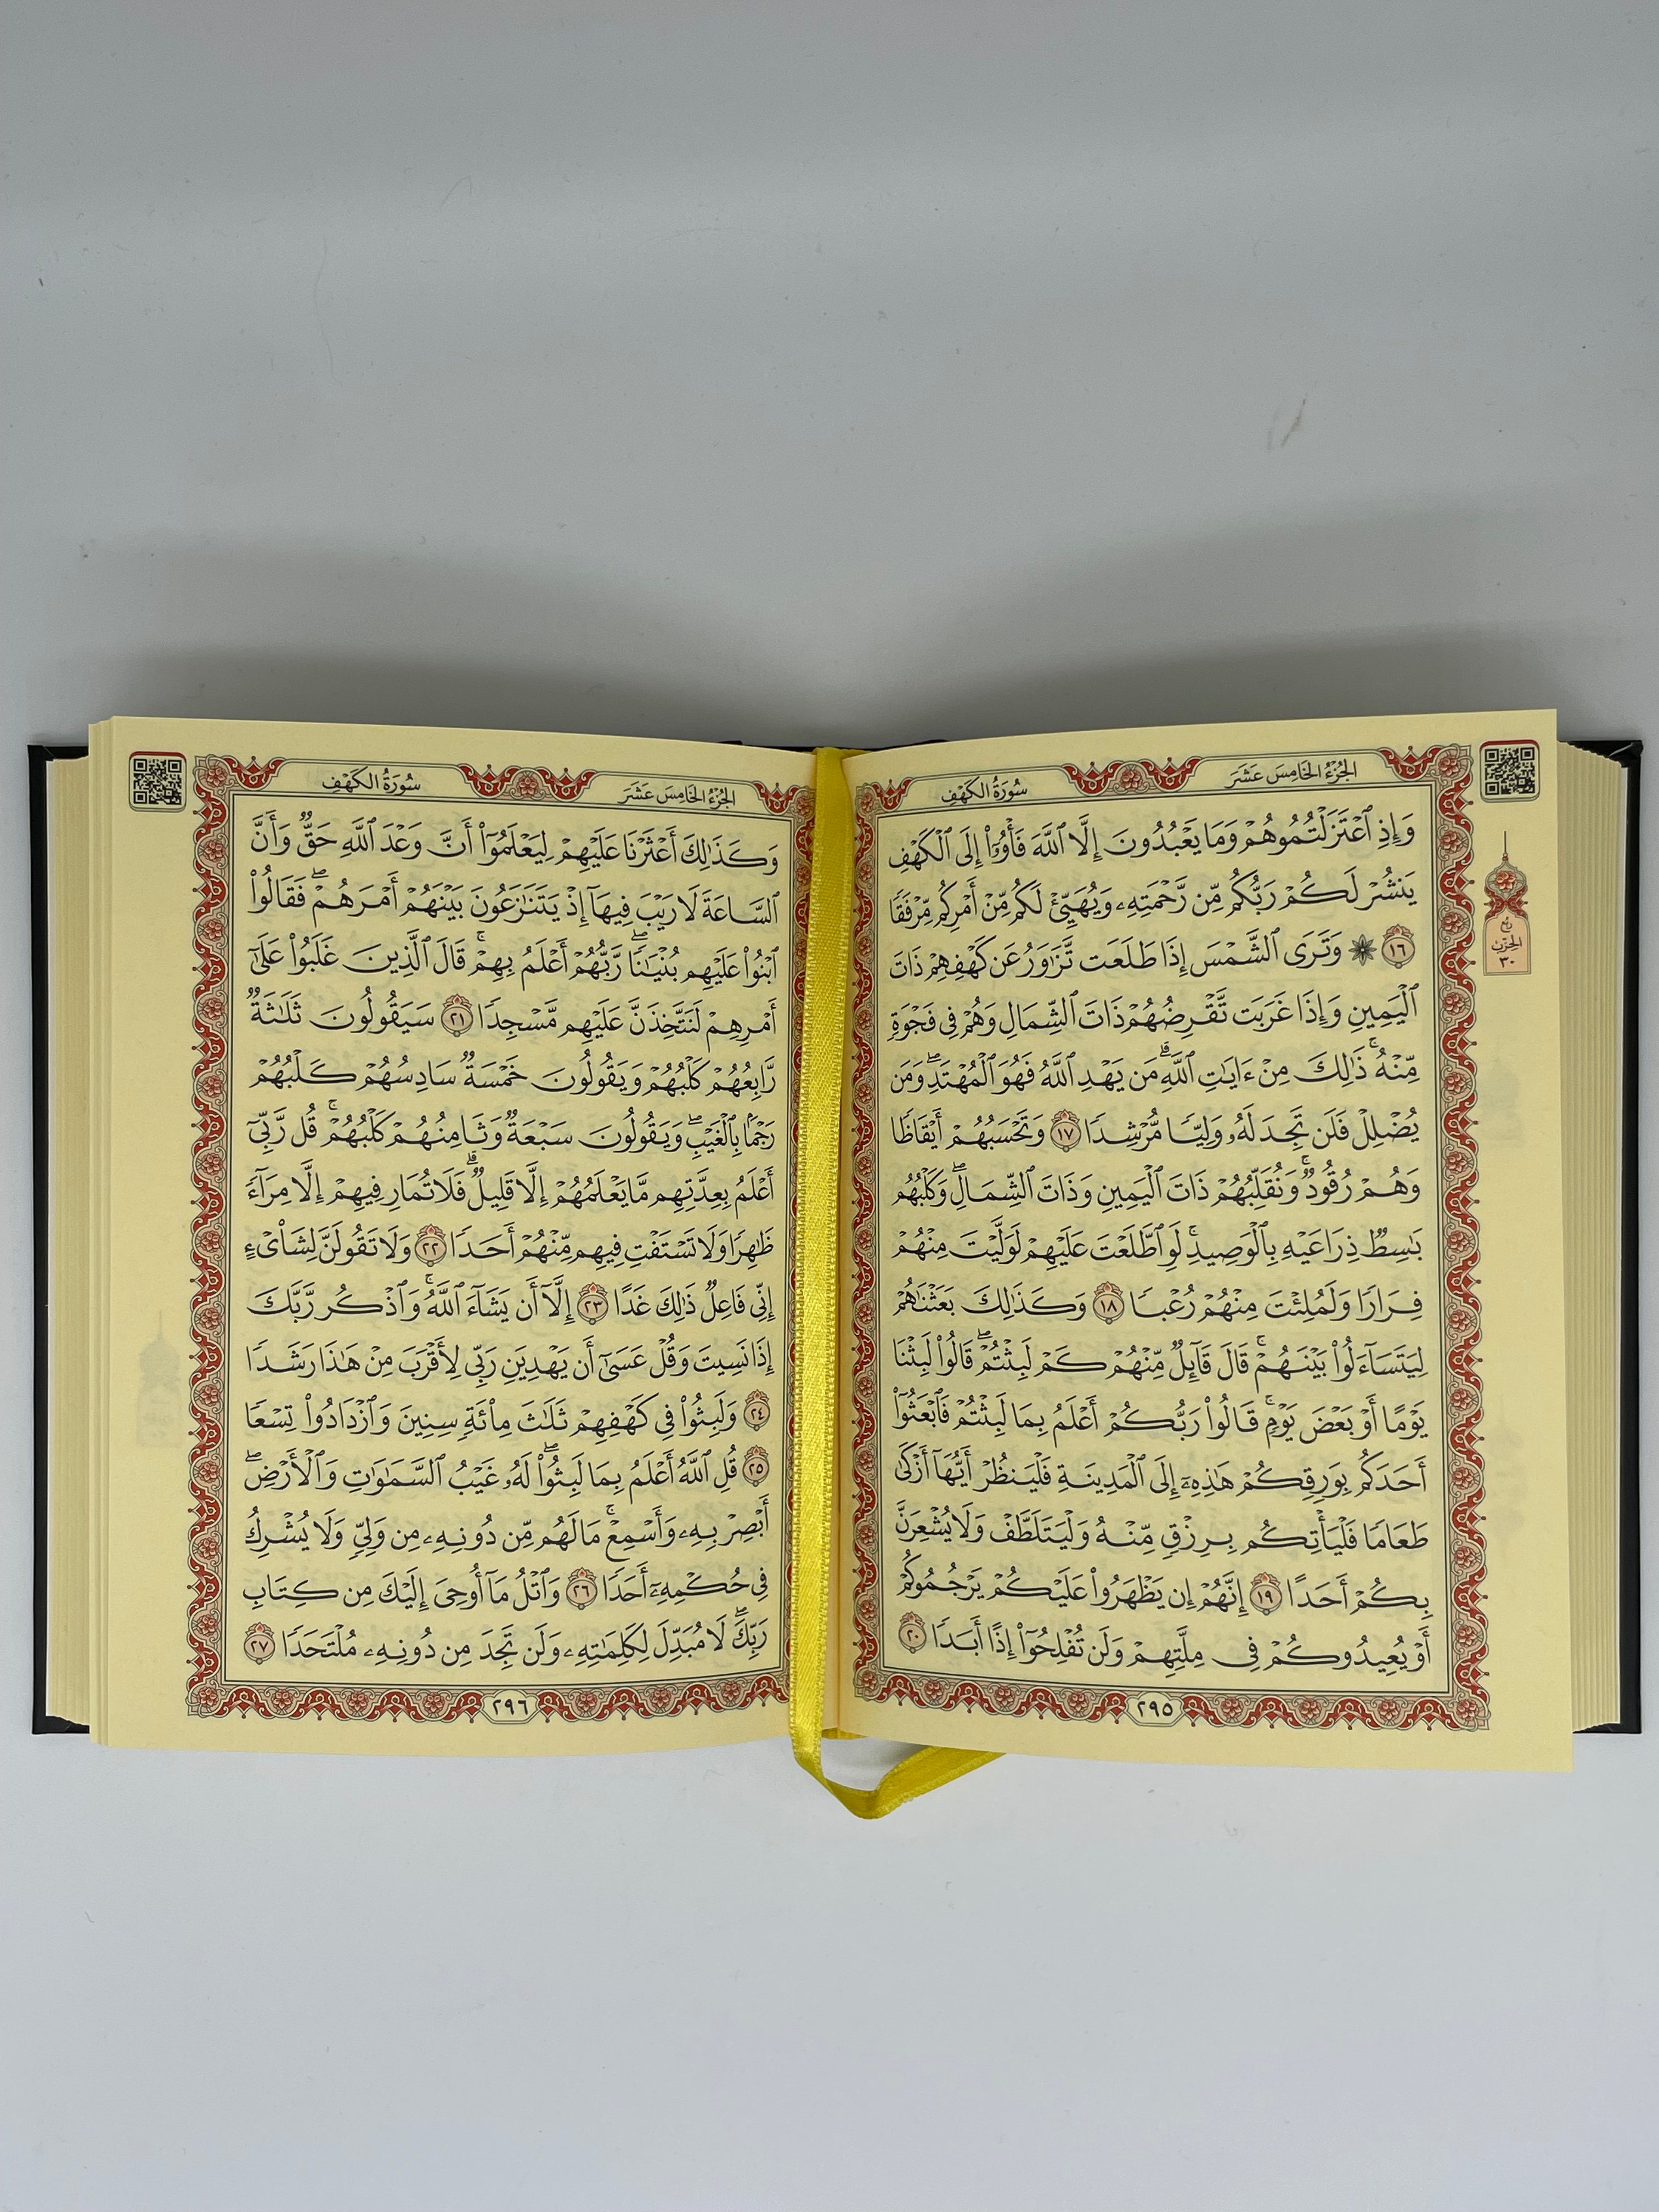 الجُزْءُ الخَامِسَ عَشَرَ
سُورَةُ الكَهْفِ
وَإِذِ ٱعۡتَزَلۡتُمُوهُمۡ وَمَا يَعۡبُدُونَ إِلَّا ٱللَّهَ فَأۡوُۥٓاْ إِلَى ٱلۡكَهۡفِ
يَنشُرۡ لَكُمۡ رَبُّكُم مِّن رَّحۡمَتِهِۦ وَيُهَيِّئۡ لَكُم مِّنۡ أَمۡرِكُم مِّرۡفَقٗا
١٦ ۞ وَتَرَى ٱلشَّمۡسَ إِذَا طَلَعَت تَّزَٰوَرُ عَن كَهۡفِهِمۡ ذَاتَ
ٱلۡيَمِينِ وَإِذَا غَرَبَت تَّقۡرِضُهُمۡ ذَاتَ ٱلشِّمَالِ وَهُمۡ فِي فَجۡوَةٖ
مِّنۡهُۚ ذَٰلِكَ مِنۡ ءَايَٰتِ ٱللَّهِۗ مَن يَهۡدِ ٱللَّهُ فَهُوَ ٱلۡمُهۡتَدِۖ وَمَن
يُضۡلِلۡ فَلَن تَجِدَ لَهُۥ وَلِيّٗا مُّرۡشِدٗا ١٧ وَتَحۡسَبُهُمۡ أَيۡقَاظٗا
وَهُمۡ رُقُودٞۚ وَنُقَلِّبُهُمۡ ذَاتَ ٱلۡيَمِينِ وَذَاتَ ٱلشِّمَالِۖ وَكَلۡبُهُم
بَٰسِطٞ ذِرَاعَيۡهِ بِٱلۡوَصِيدِۚ لَوِ ٱطَّلَعۡتَ عَلَيۡهِمۡ لَوَلَّيۡتَ مِنۡهُمۡ
فِرَارٗا وَلَمُلِئۡتَ مِنۡهُمۡ رُعۡبٗا ١٨ وَكَذَٰلِكَ بَعَثۡنَٰهُمۡ
لِيَتَسَآءَلُواْ بَيۡنَهُمۡۚ قَالَ قَآئِلٞ مِّنۡهُمۡ كَمۡ لَبِثۡتُمۡۖ قَالُواْ لَبِثۡنَا
يَوۡمًا أَوۡ بَعۡضَ يَوۡمٖۚ قَالُواْ رَبُّكُمۡ أَعۡلَمُ بِمَا لَبِثۡتُمۡ فَٱبۡعَثُوٓاْ
أَحَدَكُم بِوَرِقِكُمۡ هَٰذِهِۦٓ إِلَى ٱلۡمَدِينَةِ فَلۡيَنظُرۡ أَيُّهَآ أَزۡكَىٰ
طَعَامٗا فَلۡيَأۡتِكُم بِرِزۡقٖ مِّنۡهُ وَلۡيَتَلَطَّفۡ وَلَا يُشۡعِرَنَّ
بِكُمۡ أَحَدًا ١٩ إِنَّهُمۡ إِن يَظۡهَرُواْ عَلَيۡكُمۡ يَرۡجُمُوكُمۡ
أَوۡ يُعِيدُوكُمۡ فِي مِلَّتِهِمۡ وَلَن تُفۡلِحُوٓاْ إِذًا أَبَدٗا ٢٠
٢٩٥
ربع
الحزب
٣٠
الجُزْءُ الخَامِسَ عَشَرَ
سُورَةُ الكَهْفِ
وَكَذَٰلِكَ أَعۡثَرۡنَا عَلَيۡهِمۡ لِيَعۡلَمُوٓاْ أَنَّ وَعۡدَ ٱللَّهِ حَقّٞ وَأَنَّ
ٱلسَّاعَةَ لَا رَيۡبَ فِيهَآ إِذۡ يَتَنَٰزَعُونَ بَيۡنَهُمۡ أَمۡرَهُمۡۖ فَقَالُواْ
ٱبۡنُواْ عَلَيۡهِم بُنۡيَٰنٗاۖ رَّبُّهُمۡ أَعۡلَمُ بِهِمۡۚ قَالَ ٱلَّذِينَ غَلَبُواْ عَلَىٰٓ
أَمۡرِهِمۡ لَنَتَّخِذَنَّ عَلَيۡهِم مَّسۡجِدٗا ٢١ سَيَقُولُونَ ثَلَٰثَةٞ
رَّابِعُهُمۡ كَلۡبُهُمۡ وَيَقُولُونَ خَمۡسَةٞ سَادِسُهُمۡ كَلۡبُهُمۡ
رَجۡمَۢا بِٱلۡغَيۡبِۖ وَيَقُولُونَ سَبۡعَةٞ وَثَامِنُهُمۡ كَلۡبُهُمۡۚ قُل رَّبِّيٓ
أَعۡلَمُ بِعِدَّتِهِم مَّا يَعۡلَمُهُمۡ إِلَّا قَلِيلٞۗ فَلَا تُمَارِ فِيهِمۡ إِلَّا مِرَآءٗ
ظَٰهِرٗا وَلَا تَسۡتَفۡتِ فِيهِم مِّنۡهُمۡ أَحَدٗا ٢٢ وَلَا تَقُولَنَّ لِشَاْيۡءٍ
إِنِّي فَاعِلٞ ذَٰلِكَ غَدًا ٢٣ إِلَّآ أَن يَشَآءَ ٱللَّهُۚ وَٱذۡكُر رَّبَّكَ
إِذَا نَسِيتَ وَقُلۡ عَسَىٰٓ أَن يَهۡدِيَنِ رَبِّي لِأَقۡرَبَ مِنۡ هَٰذَا رَشَدٗا
٢٤ وَلَبِثُواْ فِي كَهۡفِهِمۡ ثَلَٰثَ مِاْئَةٖ سِنِينَ وَٱزۡدَادُواْ تِسۡعٗا
٢٥ قُلِ ٱللَّهُ أَعۡلَمُ بِمَا لَبِثُواْۖ لَهُۥ غَيۡبُ ٱلسَّمَٰوَٰتِ وَٱلۡأَرۡضِۖ
أَبۡصِرۡ بِهِۦ وَأَسۡمِعۡۚ مَا لَهُم مِّن دُونِهِۦ مِن وَلِيّٖ وَلَا يُشۡرِكُ
فِي حُكۡمِهِۦٓ أَحَدٗا ٢٦ وَٱتۡلُ مَآ أُوحِيَ إِلَيۡكَ مِن كِتَابِ
رَبِّكَۖ لَا مُبَدِّلَ لِكَلِمَٰتِهِۦ وَلَن تَجِدَ مِن دُونِهِۦ مُلۡتَحَدٗا ٢٧
٢٩٦